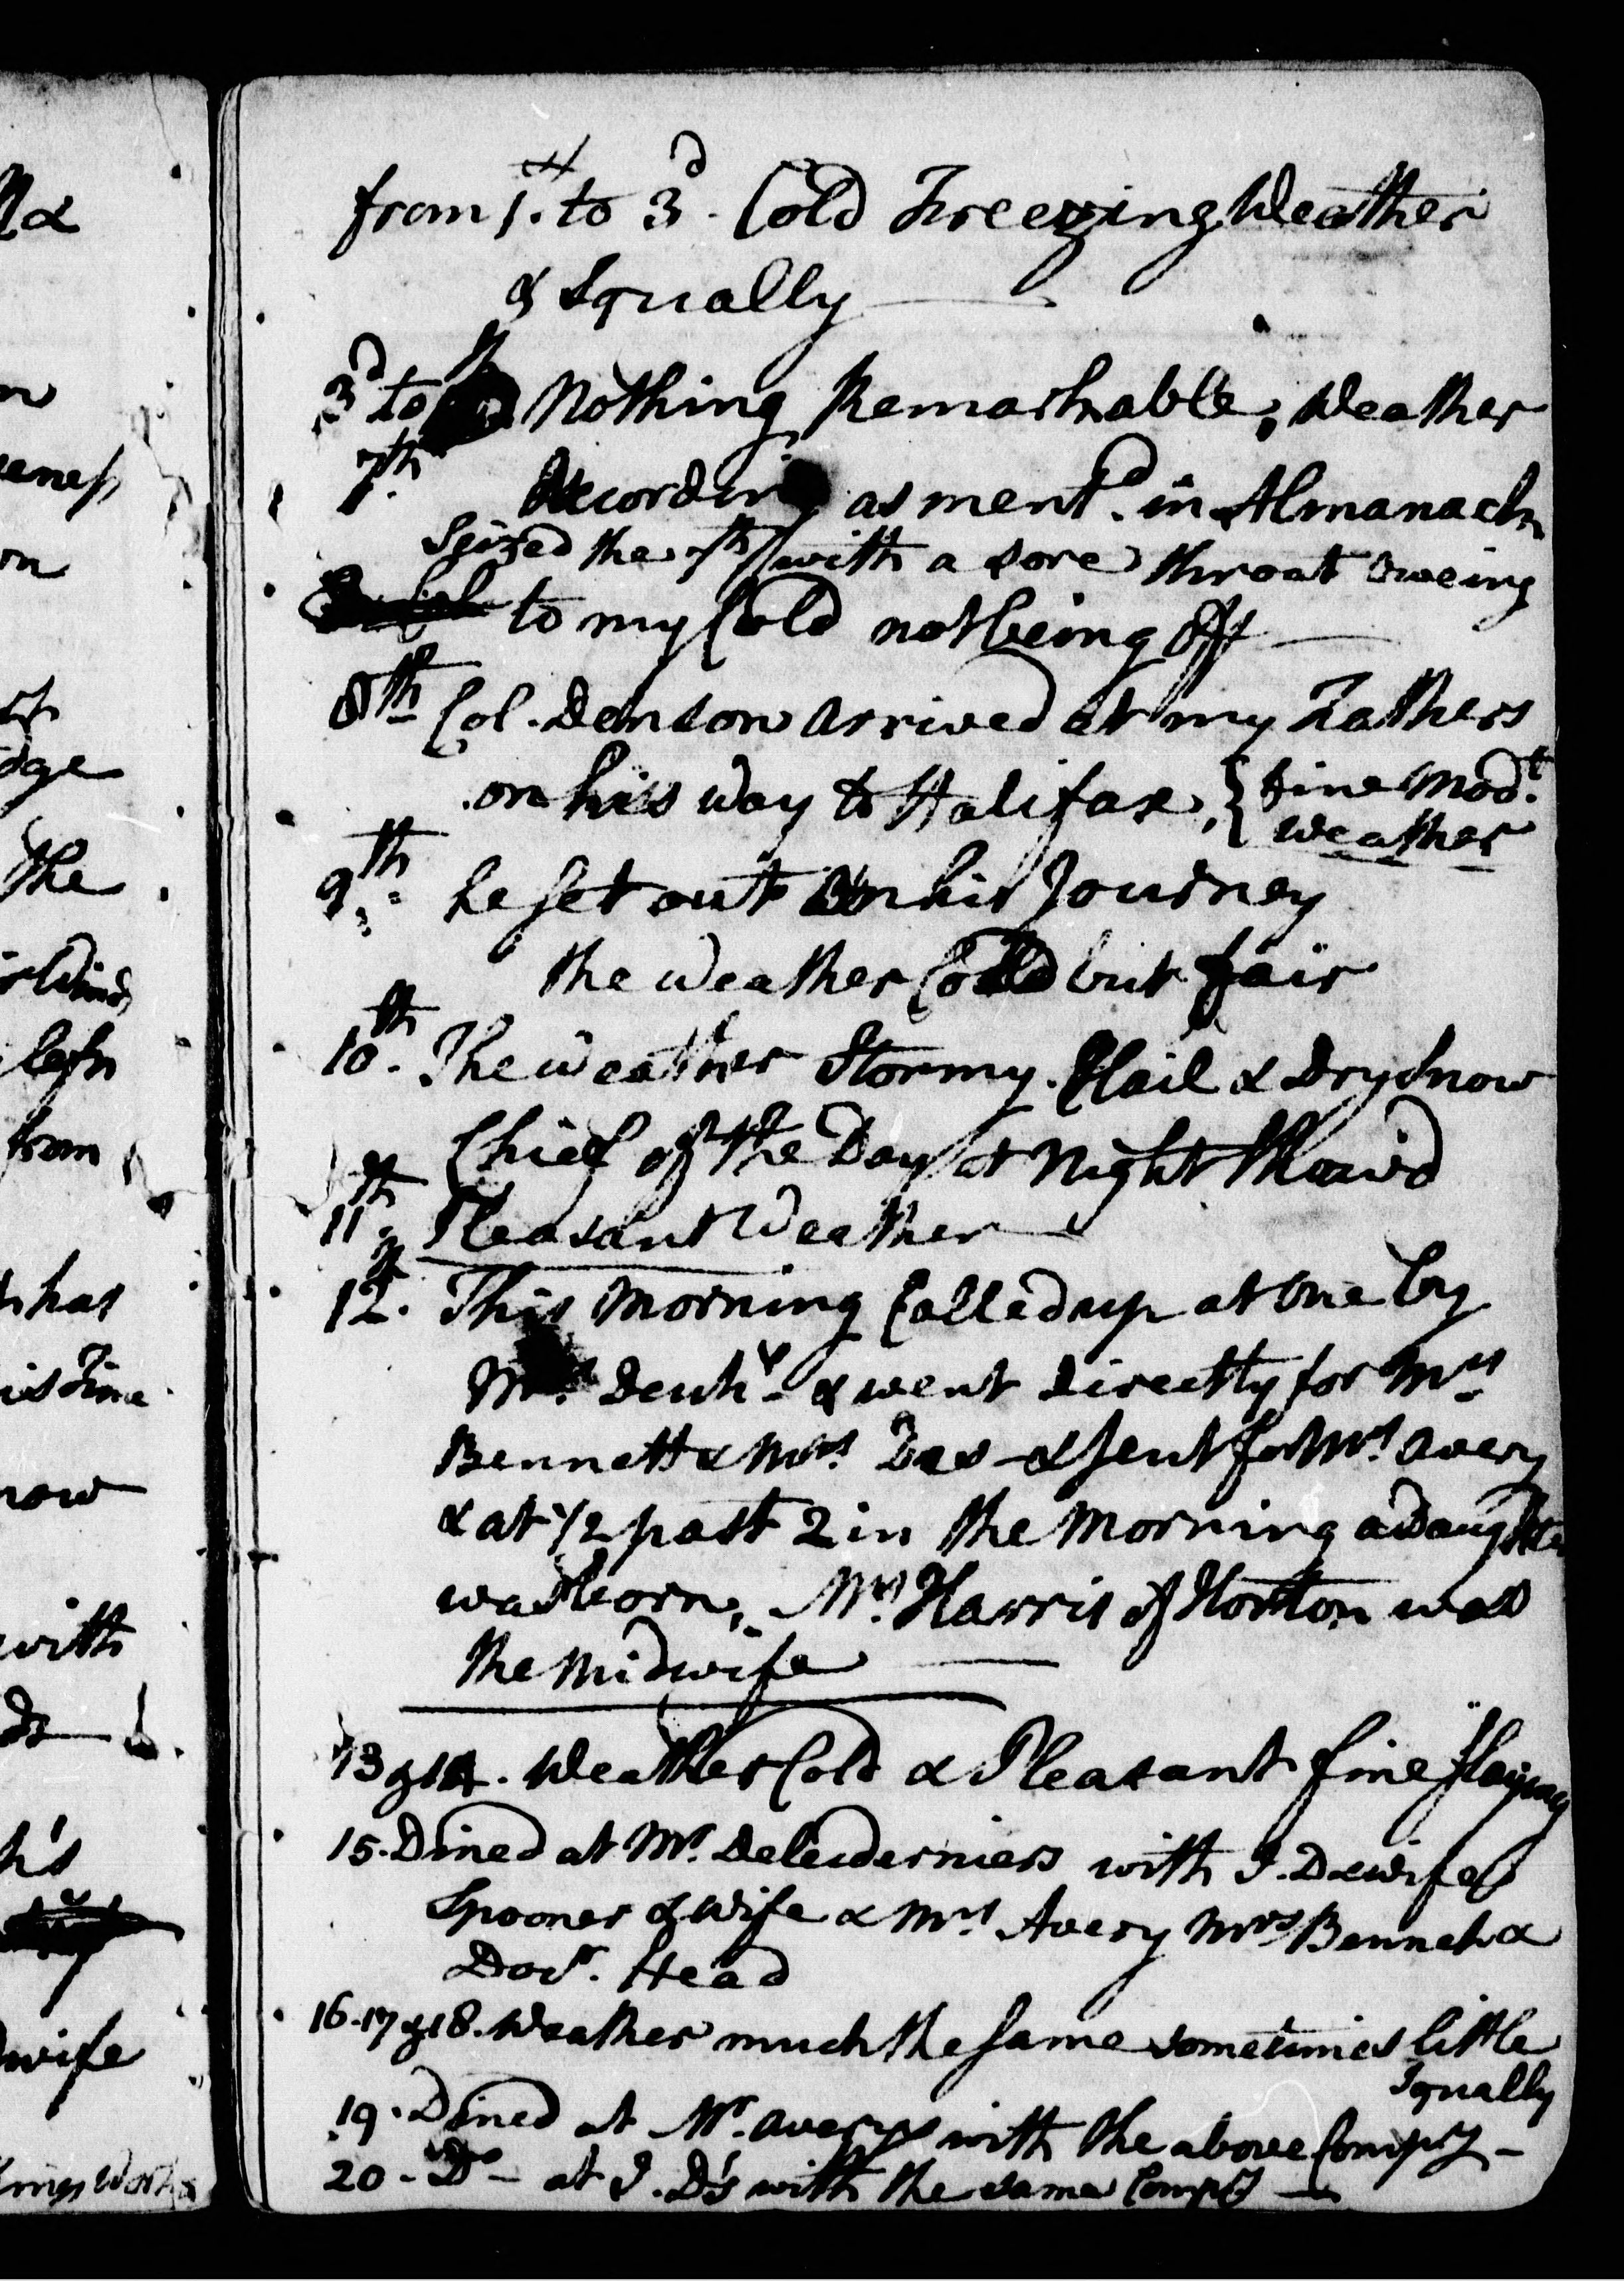 from 1st. to 3d. Cold Freezing Weather
& Squally
3d to Nothing Remarkable, Weather
7th. According as mentd. in Almanack
Seized the 7th with a sore throat oweing
to my Cold not being Off
8th Col. Denson arrived at my Fathers
on his way to Halifax, { fine Modt.
weather
9th. he set out on his Journey
the Weather Cold but fair
10th. The Weather Stormy. Hail & Dry Snow
Chief of the Day at Night thaw'd
11th. Pleasant Weather
12th. This Morning Called up at One by
& went directly for Mrs
Bennett & Mrs. & sent for Mrs. Avery
& at 1/2 past 2 in the Morning a Daughter
was born, Mrs. Harris of Horton was
the Midwife
13 & 14. Weather Cold & Pleasant fine Slaying
15. Dined at Mr. Delesderniers with J. D & wife
Spooner & Wife & Mrs Avery Mrs Bennet &
Docr. Head
16. 17 & 18. Weather much the same sometimes little
squally
19. Dined at Mr. Averys with the above Compy -
20 - Do - at J. D's with the same Compy -
Na
eness
on
dge
the
from
has
is Time
now
with
h's
wife